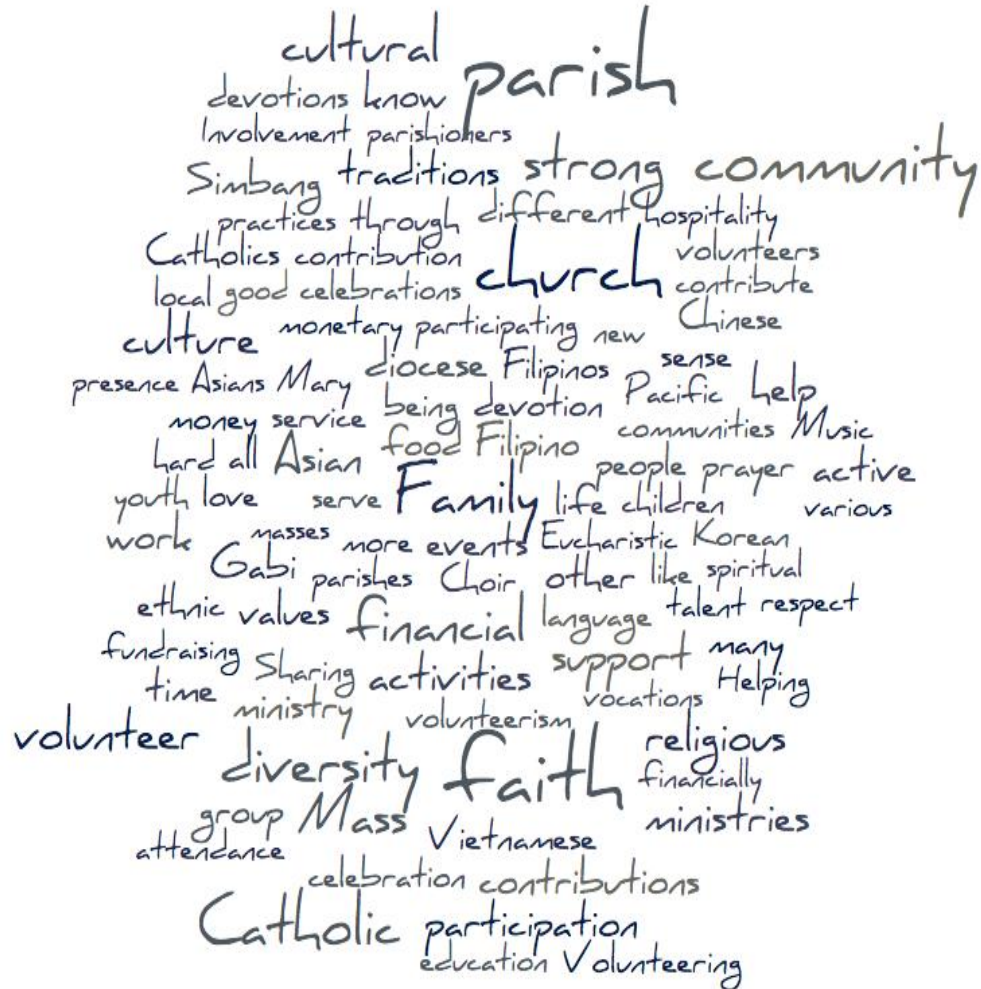 cultural parish
devotions know
Involvement parishioners
Simbang traditions strong community
practices through different hospitality
Catholics contribution church volunteers
local good celebrations contribute
culture monetary participating new Chinese
diocese Filipinos sense
presence Asians Mary Pacific help
being devotion
money service communities Music
hard all Asian food Filipino
people prayer active
youth love serve Family life children various
work masses more events Eucharistic Korean
Gabi parishes Choir other like spiritual
ethnic values financial language talent respect
fundraising Sharing activities support many
time vocations Helping
ministry volunteerism
volunteer diversity faith religious
financially
group Mass Vietnamese ministries
attendance
celebration contributions
Catholic participation
education Volunteering